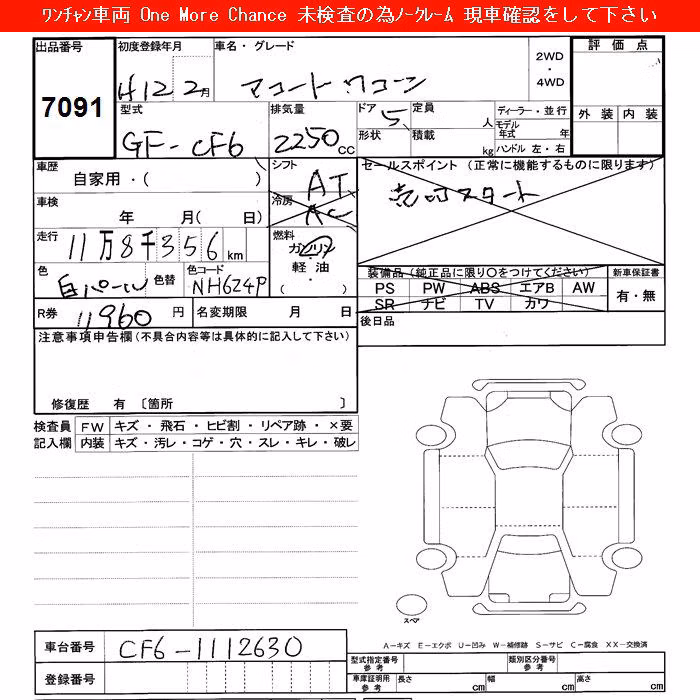 ﾜﾝﾁｬﾝ車両 One More Chance 未検査の為ﾉｰｸﾚｰﾑ 現車確認をして下さい
出品番号 初度登録年月 車名・グレード 2WD・4WD 評価点
7091 H12 2月 アコードワゴン
型式 排気量 ドア 定員 ディーラー・並行 外装 内装
GF-CF6 2250CC 5 人 モデル年式 年
形状 積載 kg ハンドル 左・右
車歴 シフト セールスポイント (正常に機能するものに限ります)
自家用・( ) AT 売切スタート
車検 冷房
年 月( 日) AC
走行 燃料
11万8千356km ガソリン
軽油
色 色替 色コード ・ 装備品 (純正品に限り○をつけてください) 新車保証書
白パール NH624P ( ) PS PW ABS エアB AW 有・無
SR ナビ TV カワ
R券 11960円 名変期限 月 日 後日品
注意事項申告欄 (不具合内容等は具体的に記入して下さい)
修復歴 有 〔箇所 〕
検査員 FW キズ・飛石・ヒビ割・リペア跡・×要
記入欄 内装 キズ・汚レ・コゲ・穴・スレ・キレ・破レ
スペア
車台番号 CF6-1112630
A－キズ E－エクボ U－凹み W－補修跡 S－サビ C－腐食 XX－交換済
登録番号
型式指定番号 参考 類別区分番号 参考
車庫証明用 参考 長さ cm 幅 cm 高さ cm